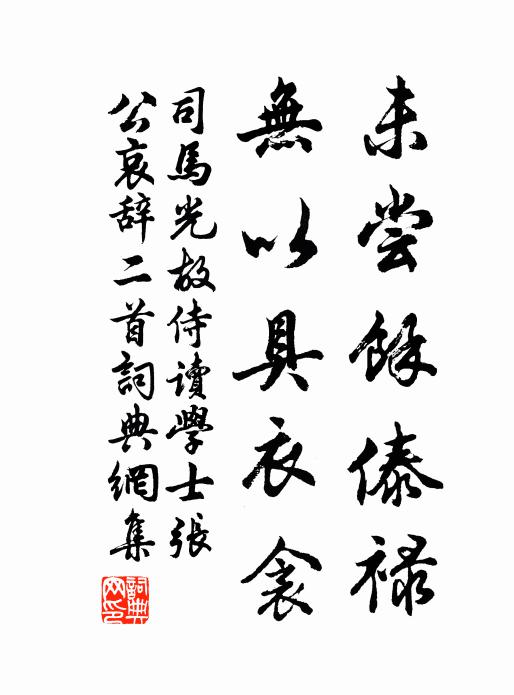 未尝餘俸禄
無以具衣衾
司馬光故侍读學士張
公哀辞二首詞典網集
詞典
网印